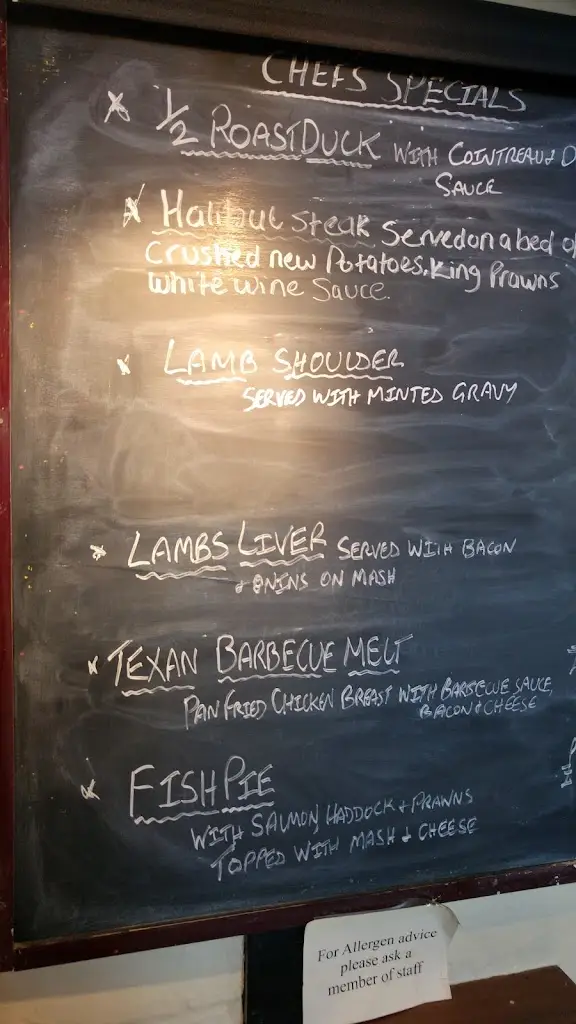 CHEFS SPECIALS
1/2 ROAST DUCK WITH COINTREAU &
SAUCE
Halibut steak Served on a bed of
Crushed new Potatoes, King Prawns
White wine Sauce.
LAMB SHOULDER
SERVED WITH MINTED GRAVY
LAMBS LIVER SERVED WITH BACON
& ONINS ON MASH
TEXAN BARBECUE MELT
PAN FRIED CHICKEN BREAST WITH BARBECUE SAUCE,
BACON & CHEESE
FISH PIE
WITH SALMON, HADDOCK & PRAWNS
TOPPED WITH MASH & CHEESE
For Allergen advice
please ask a
member of staff